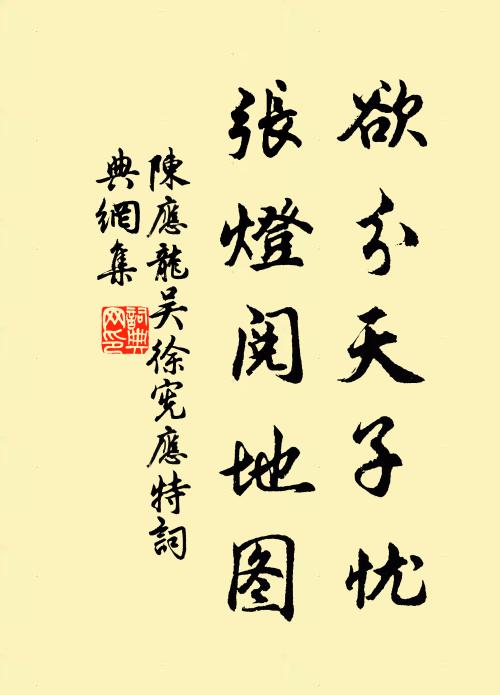 欲分天子忧
張燈阅地图
陳應龍吴徐宪應特詞
典網集
詞典网印